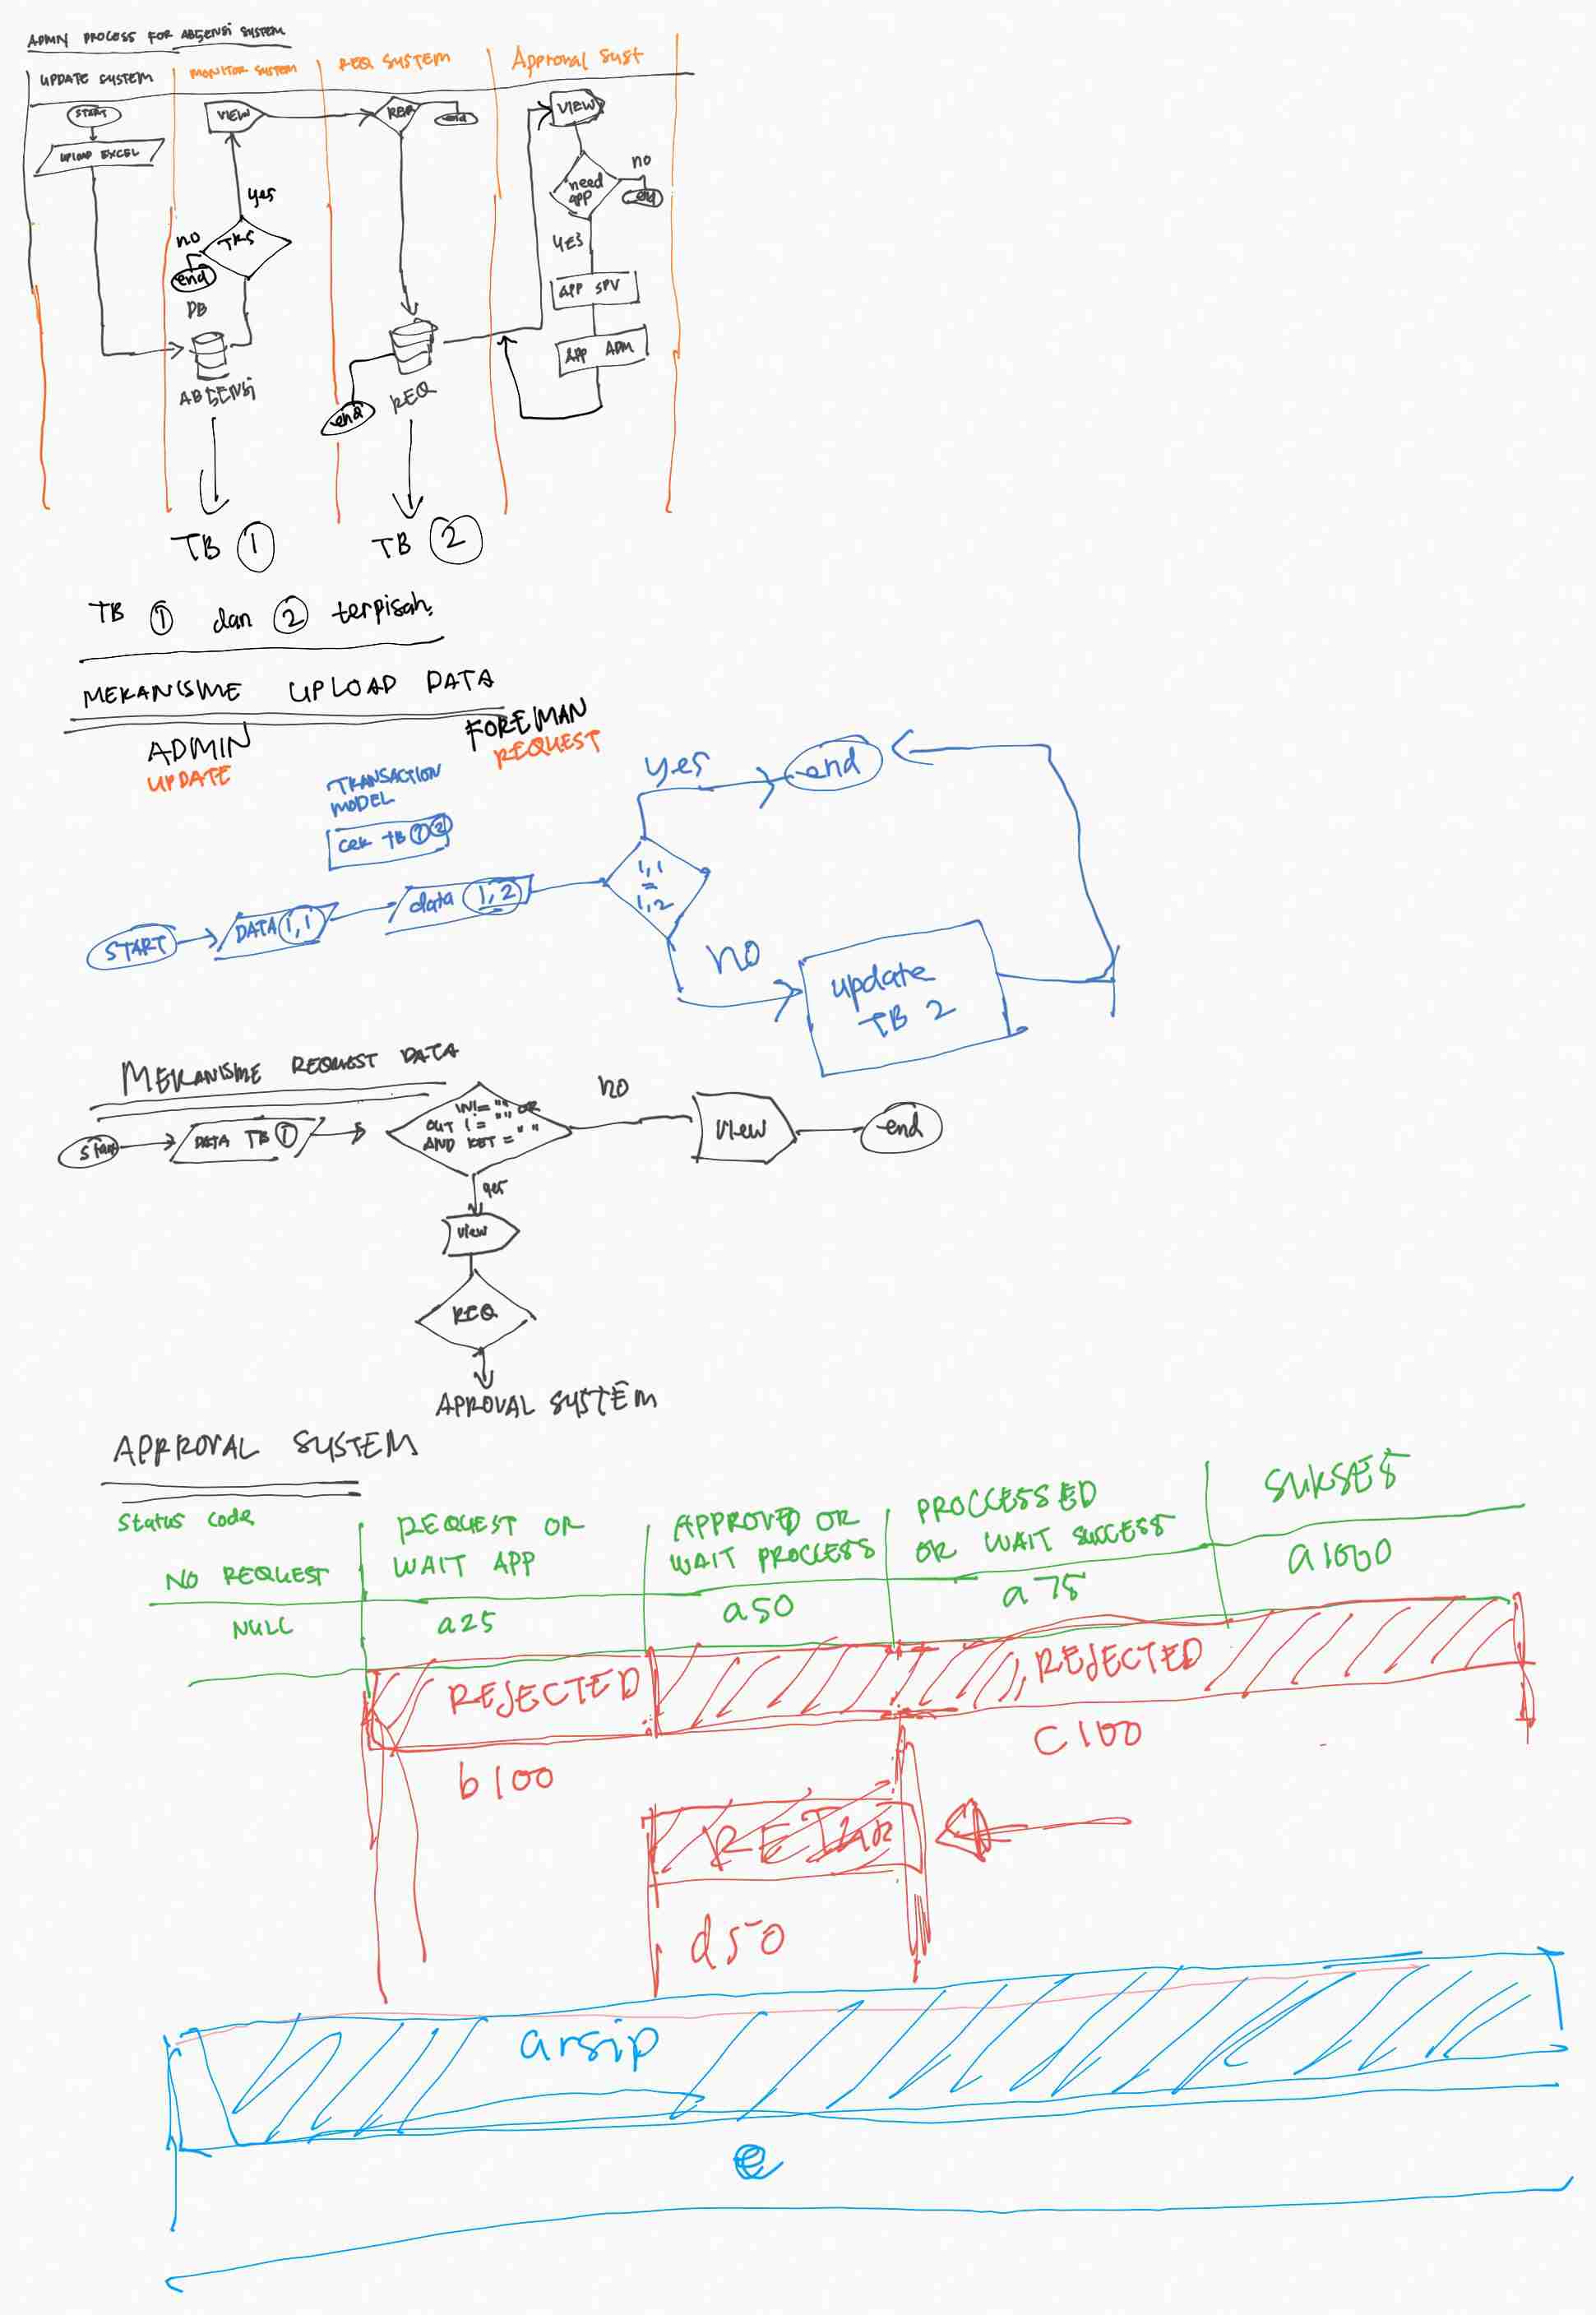 ADMN PROCESS FOR ABSENSI SYSTEM
UPDATE SYSTEM
MONITOR SYSTEM
REQ SYSTEM
Approval Syst
START
UPLOAD EXCEL
VIEW
yes
no
TKS
end
DB
ABSENSI
REQ
end
REQ
end
VIEW
need
app
no
end
YES
APP SPV
APP ADM
TB 1
TB 2
TB 1 dan 2 terpisah.
MEKANISME UPLOAD DATA
ADMIN
UPDATE
FOREMAN
REQUEST
TRANSACTION
MODEL
cek TB 1 2
START
DATA 1,1
data 1,2
1,1
=
1,2
yes
end
no
update
TB 2
MEKANISME REQUEST DATA
start
DATA TB 1
IN!= "" OR
OUT != ""
AND KET = ""
no
view
end
yes
view
REQ
APROVAL SYSTEM
APPROVAL SYSTEM
Status Code
NO REQUEST
REQUEST OR
WAIT APP
APPROVED OR
WAIT PROCCESS
PROCCESSED
OR WAIT SUCCESS
SUKSES
NULL
a25
a50
a75
a1000
REJECTED
REJECTED
b100
C100
d50
arsip
e